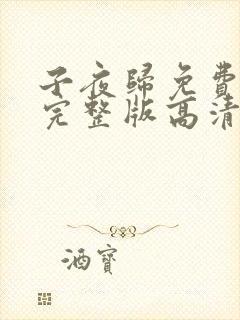 子夜歸免費
完整版高清
酒寶